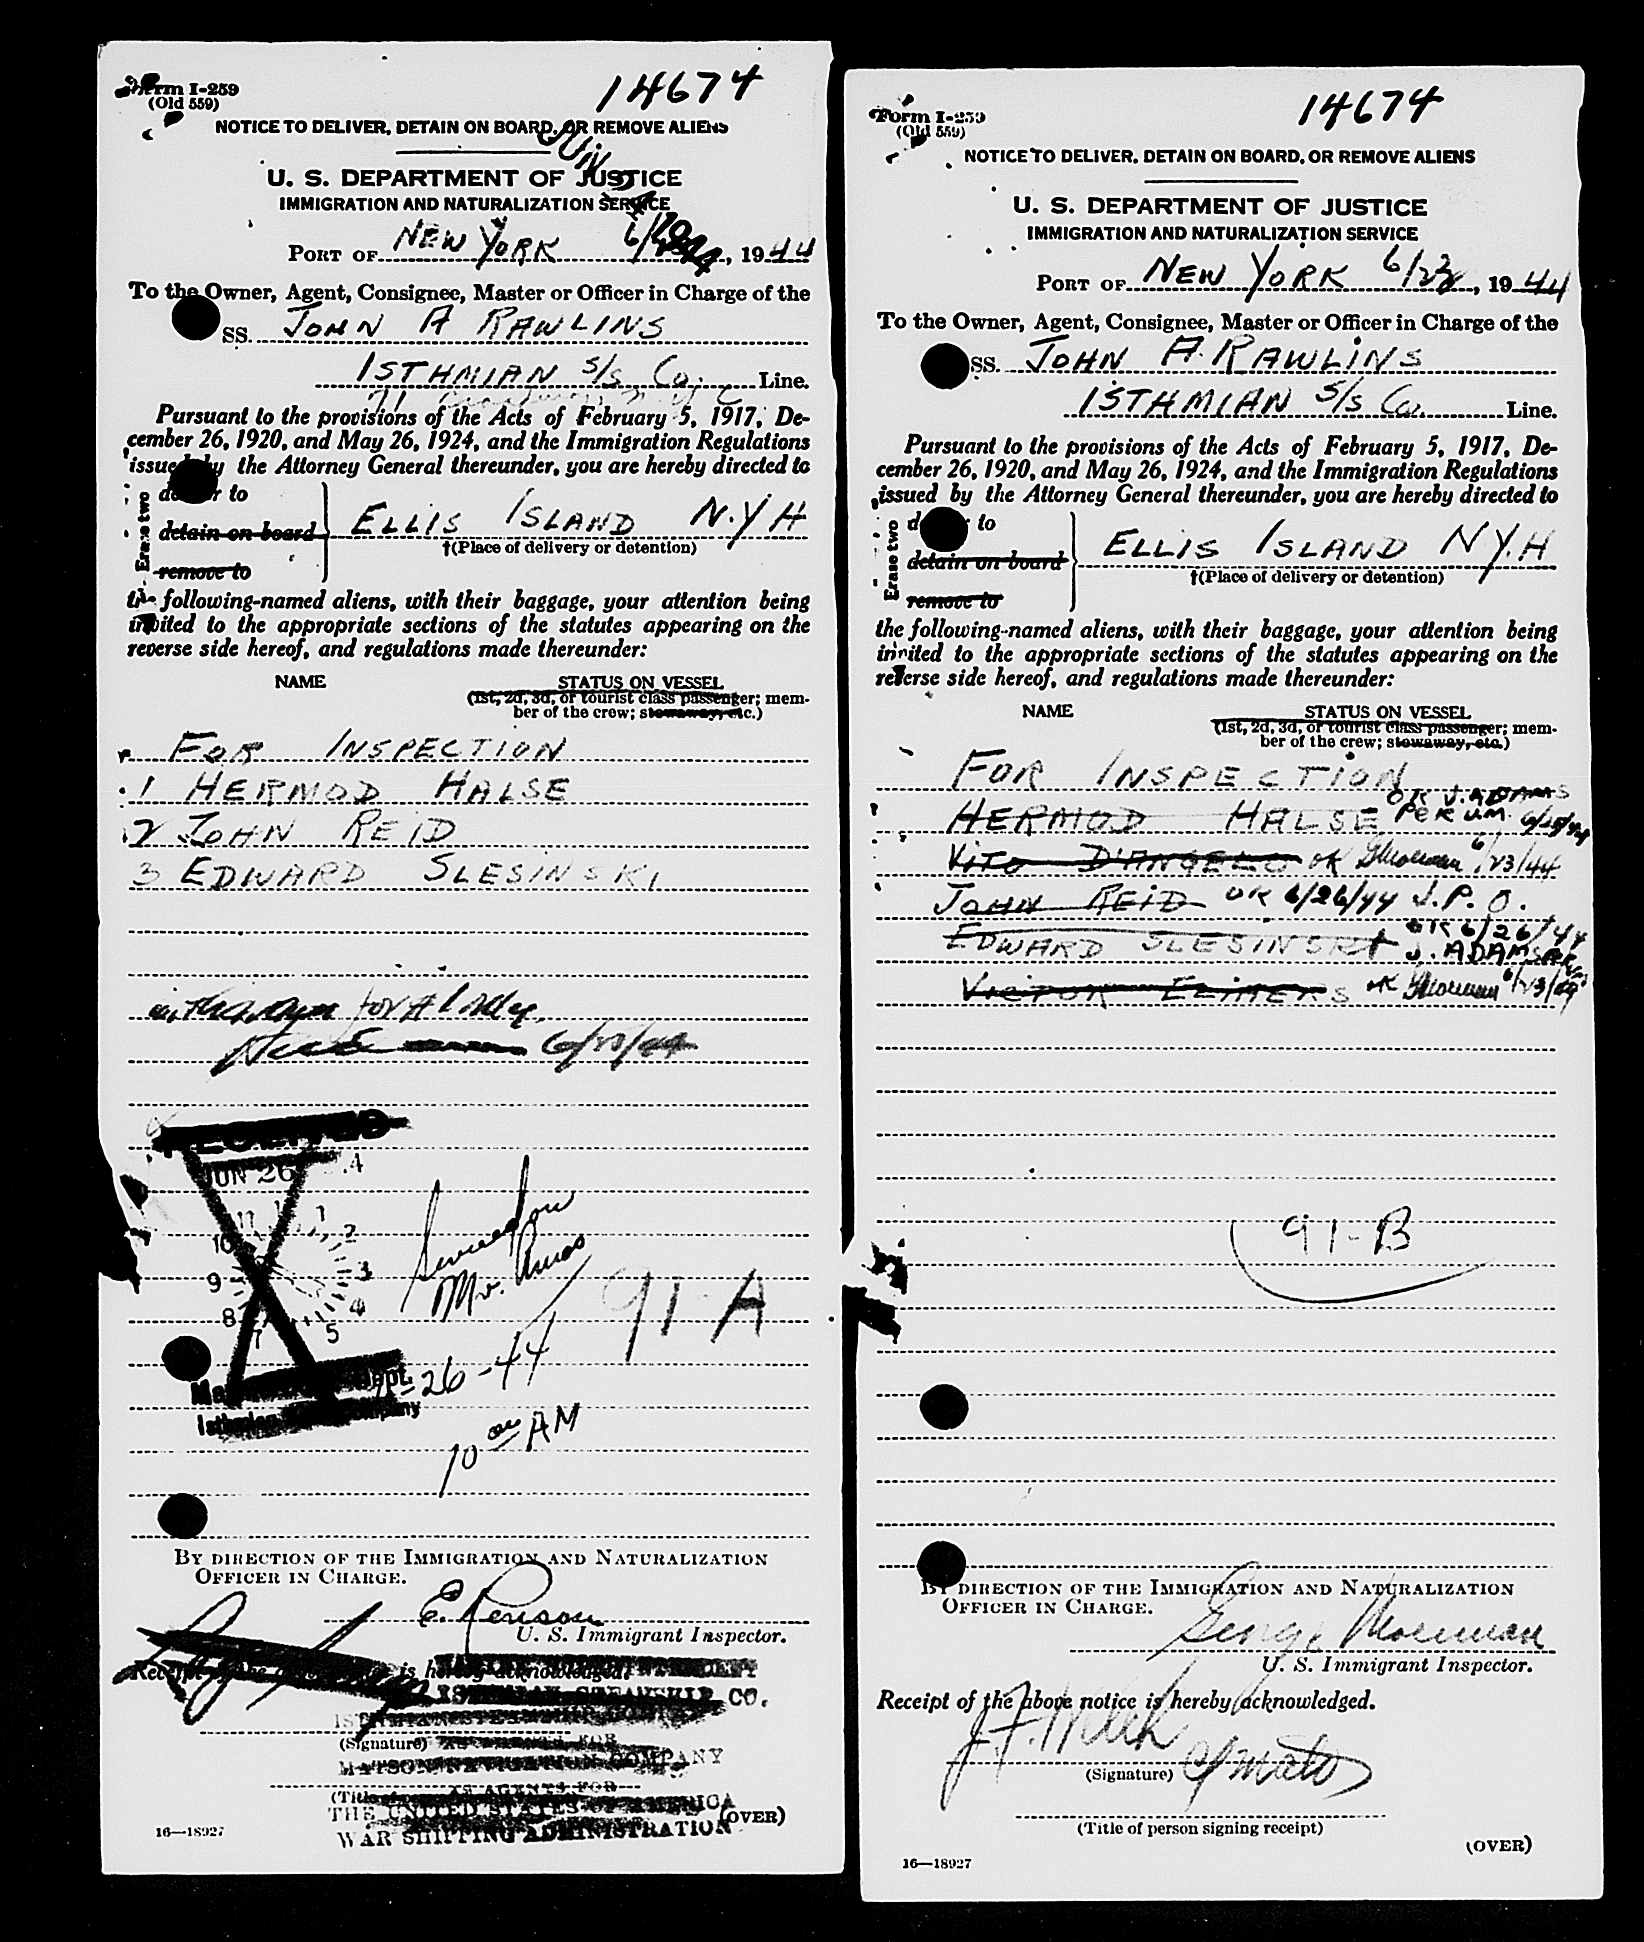 Form I-259
(Old 559)
14674
NOTICE TO DELIVER, DETAIN ON BOARD, OR REMOVE ALIENS
U. S. DEPARTMENT OF JUSTICE
IMMIGRATION AND NATURALIZATION SERVICE
PORT OF NEW YORK 6/ , 1944
To the Owner, Agent, Consignee, Master or Officer in Charge of the
SS. JOHN A RAWLINS
ISTHMIAN S/S Co. Line.
71
Pursuant to the provisions of the Acts of February 5, 1917, De-
cember 26, 1920, and May 26, 1924, and the Immigration Regulations
issued by the Attorney General thereunder, you are hereby directed to
Erase two
deliver to
detain on board
remove to
ELLIS ISLAND N.Y H
†(Place of delivery or detention)
the following-named aliens, with their baggage, your attention being
invited to the appropriate sections of the statutes appearing on the
reverse side hereof, and regulations made thereunder:
NAME STATUS ON VESSEL
(1st, 2d, 3d, or tourist class passenger; mem-
ber of the crew; stowaway, etc.)
FOR INSPECTION
1 HERMOD HALSE
2 JOHN REID
3 EDWARD SLESINSKI
RECEIVED
JUN 26
11 1
10 2
9 3
8 4
7 5
Mr.
91-A
26-44
10 00 AM
Dept.
Isthmian Company
BY DIRECTION OF THE IMMIGRATION AND NATURALIZATION
OFFICER IN CHARGE.
E.
U. S. Immigrant Inspector.
Receipt of the above notice is hereby acknowledged.
ISTHMIAN STEAMSHIP CO.
ISTHMIAN STEAMSHIP COMPANY
(Signature) AS AGENTS FOR
MATSON NAVIGATION COMPANY
AS AGENTS FOR
THE UNITED STATES OF AMERICA
WAR SHIPPING ADMINISTRATION
(OVER)
16—18927
Form I-259
(Old 559)
14674
NOTICE TO DELIVER, DETAIN ON BOARD, OR REMOVE ALIENS
U. S. DEPARTMENT OF JUSTICE
IMMIGRATION AND NATURALIZATION SERVICE
PORT OF NEW YORK 6/23, 1944
To the Owner, Agent, Consignee, Master or Officer in Charge of the
SS. JOHN A. RAWLINS
ISTHMIAN S/S Co. Line.
Pursuant to the provisions of the Acts of February 5, 1917, De-
cember 26, 1920, and May 26, 1924, and the Immigration Regulations
issued by the Attorney General thereunder, you are hereby directed to
Erase two
deliver to
detain on board
remove to
ELLIS ISLAND N.Y.H
†(Place of delivery or detention)
the following-named aliens, with their baggage, your attention being
invited to the appropriate sections of the statutes appearing on the
reverse side hereof, and regulations made thereunder:
NAME STATUS ON VESSEL
(1st, 2d, 3d, or tourist class passenger; mem-
ber of the crew; stowaway, etc.)
FOR INSPECTION
HERMOD HALSE OK J. ADAMS PER J.M.
VITO D'ANGELO OK 6/23/44
JOHN REID OK 6/26/44 J.P.O.
EDWARD SLESINSKI OK 6/26/44 J. ADAMS
VICTOR OK 6/23/44
91-B
BY DIRECTION OF THE IMMIGRATION AND NATURALIZATION
OFFICER IN CHARGE.
George
U. S. Immigrant Inspector.
Receipt of the above notice is hereby acknowledged.
J. F.
(Signature)
(Title of person signing receipt)
(OVER)
16—18927